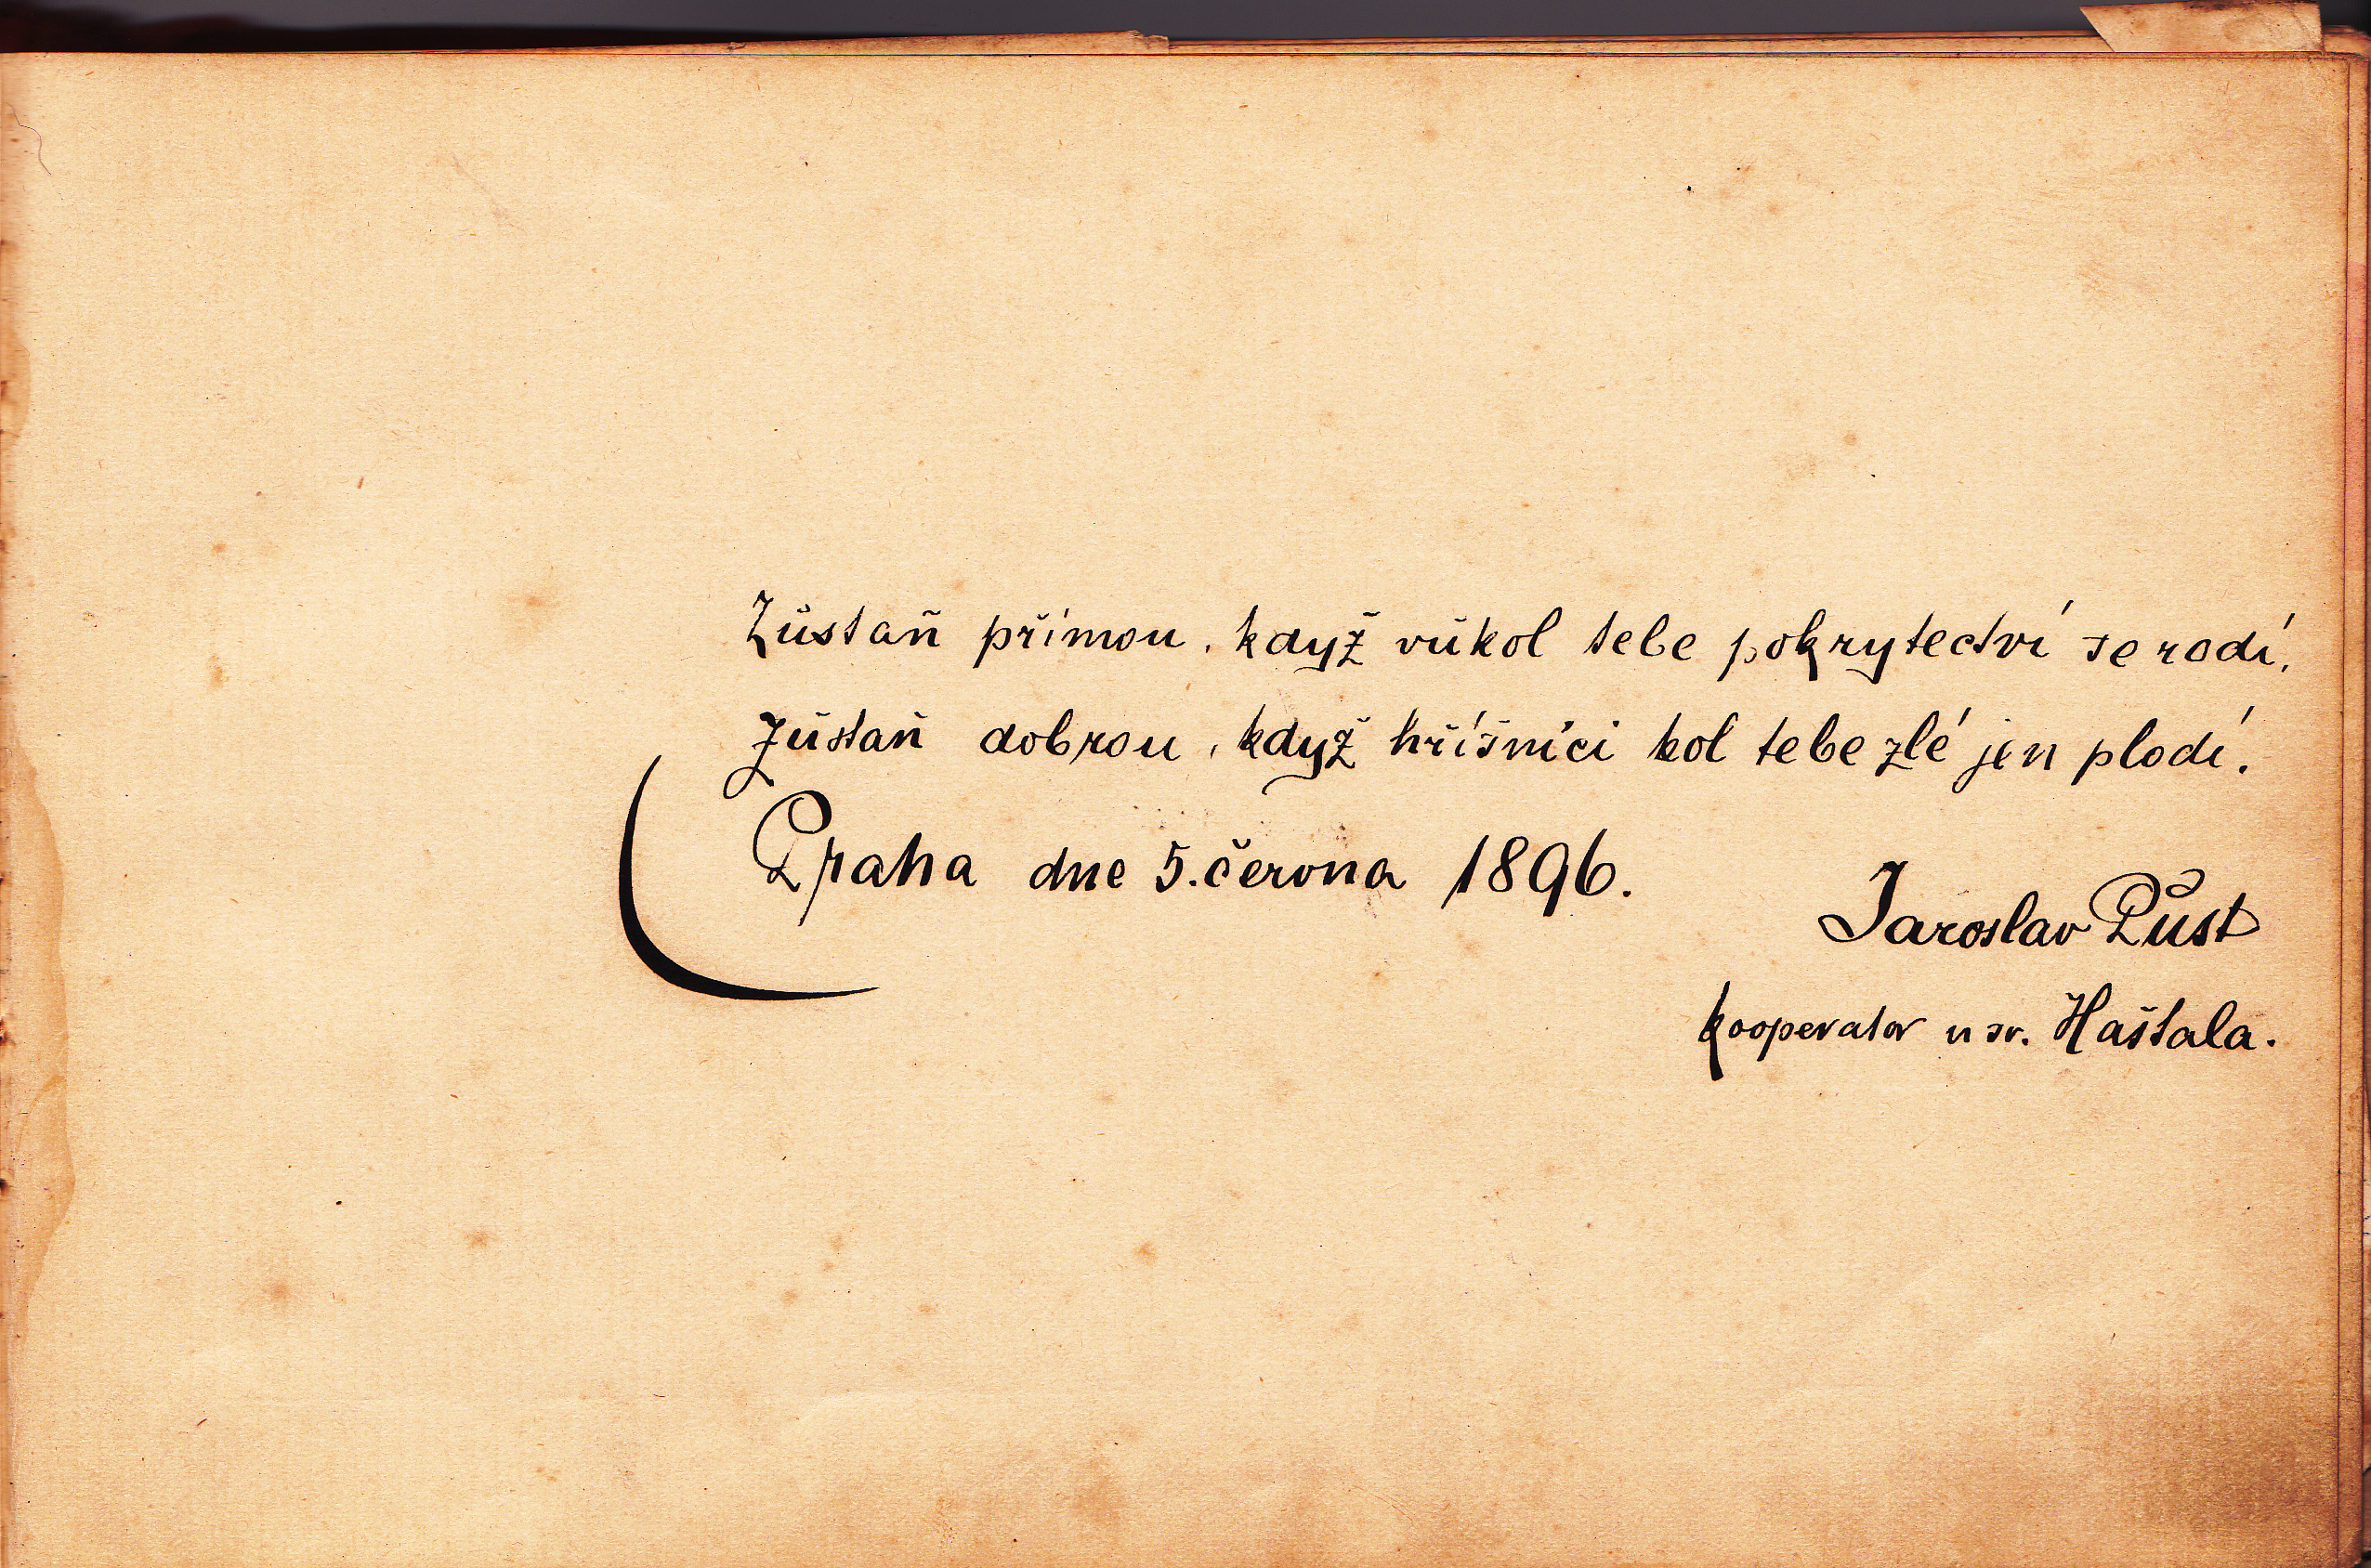 Zůstaň přímou, když vůkol tebe pokrytectví se rodí,
Zůstaň dobrou, když hříšníci kol tebe zlé jen plodí.
Praha dne 5. června 1896.
Jaroslav Půst
kooperator u sv. Haštala.